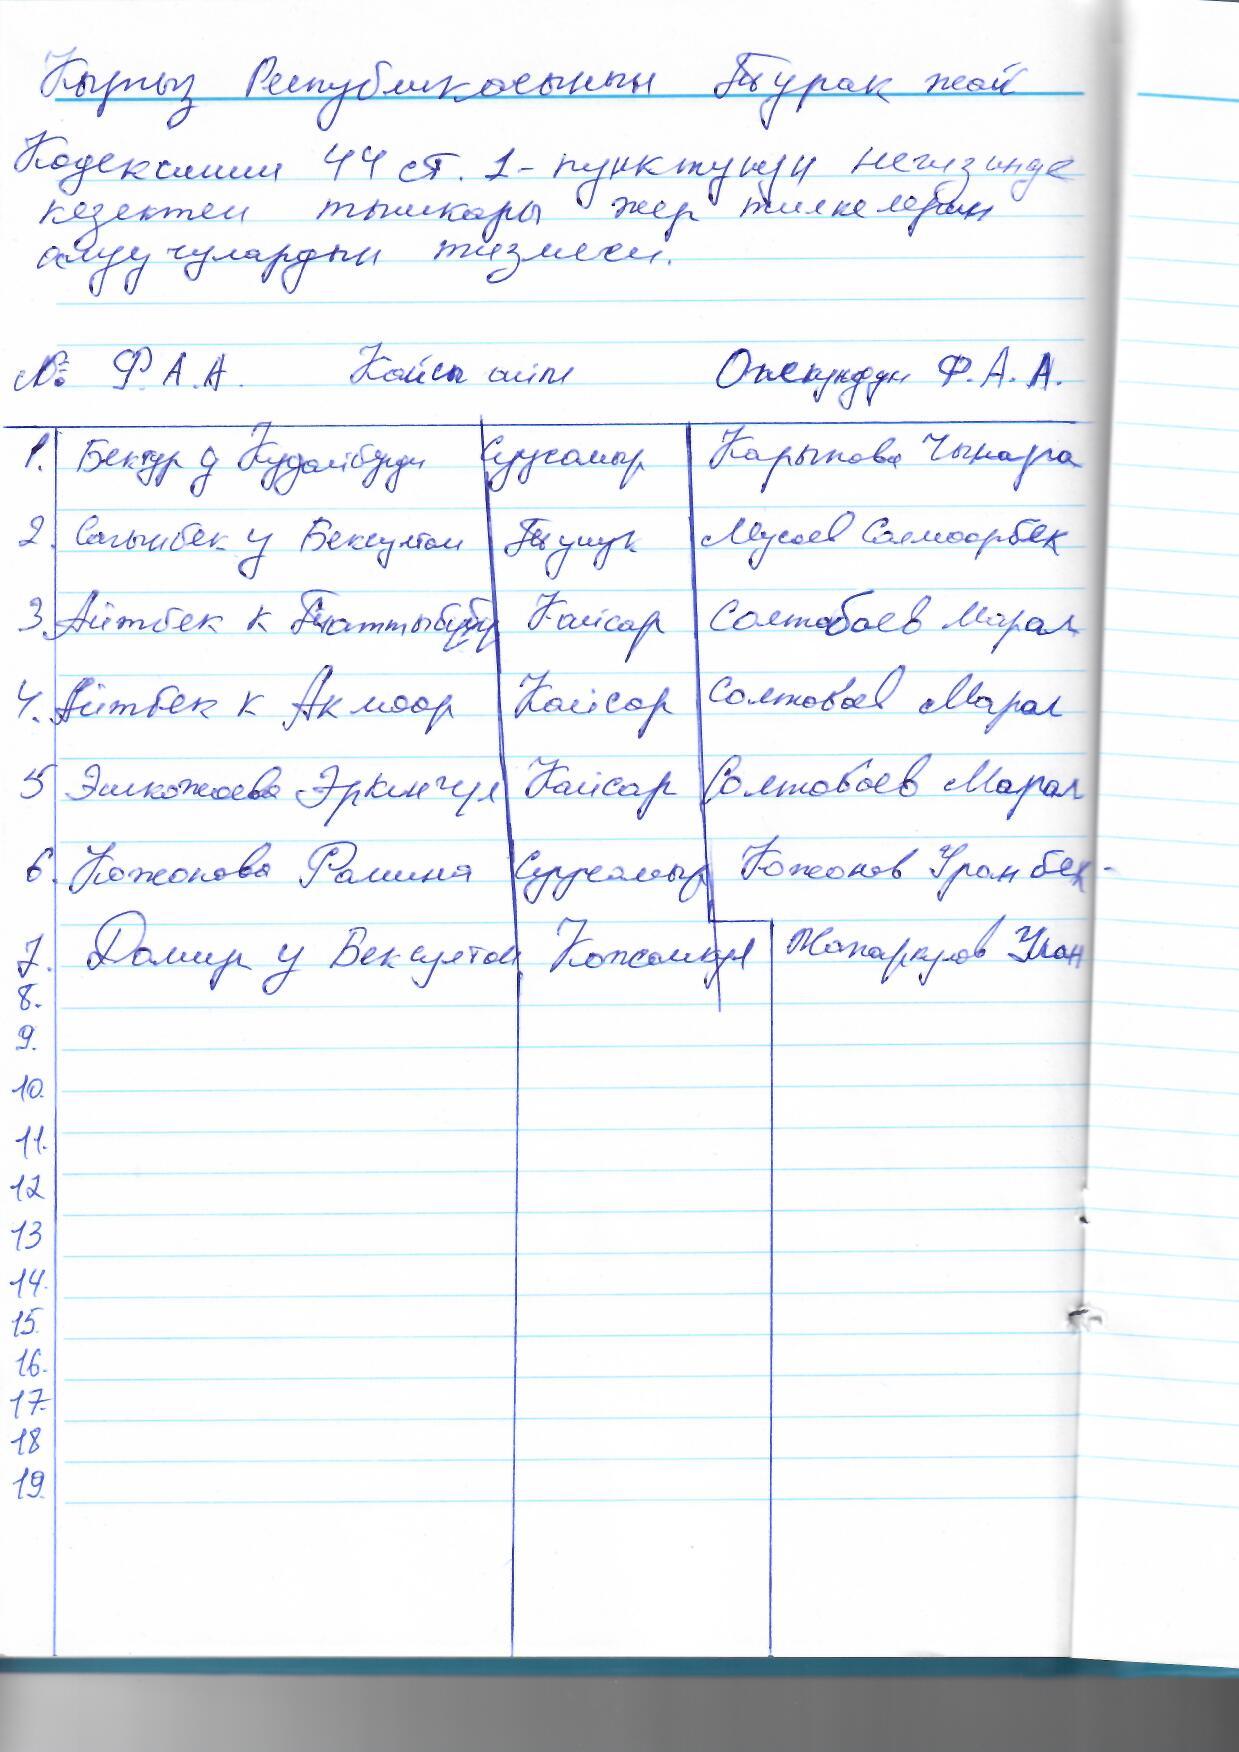 Кыргыз Республикасынын Турак жай
Кодексинин 44 ст. 1-пунктунун негизинде
кезектен тышкары жер тилкелерин
алуучулардын тизмеси.
№ Ф.А.А. Кайсы айыл Опекундун Ф.А.А.
1. Бектур у Кудайберди Суусамыр Карыпова Чынара
2. Сагынбек у Бексултан Тунук Мусаев Салмоорбек
3. Айтбек к Таттыбүбү Кайсар Солтобаев Марал
4. Айтбек к Акмоор Кайсар Солтобаев Марал
5 Эшкожоева Эркингул Кайсар Солтобаев Марал
6. Кожонова Рамина Суусамыр Кожонов Уранбек
7. Дамир у Бексултан Кожомкул Жапаркулов Улан
8.
9.
10.
11.
12
13
14.
15.
16.
17.
18
19.